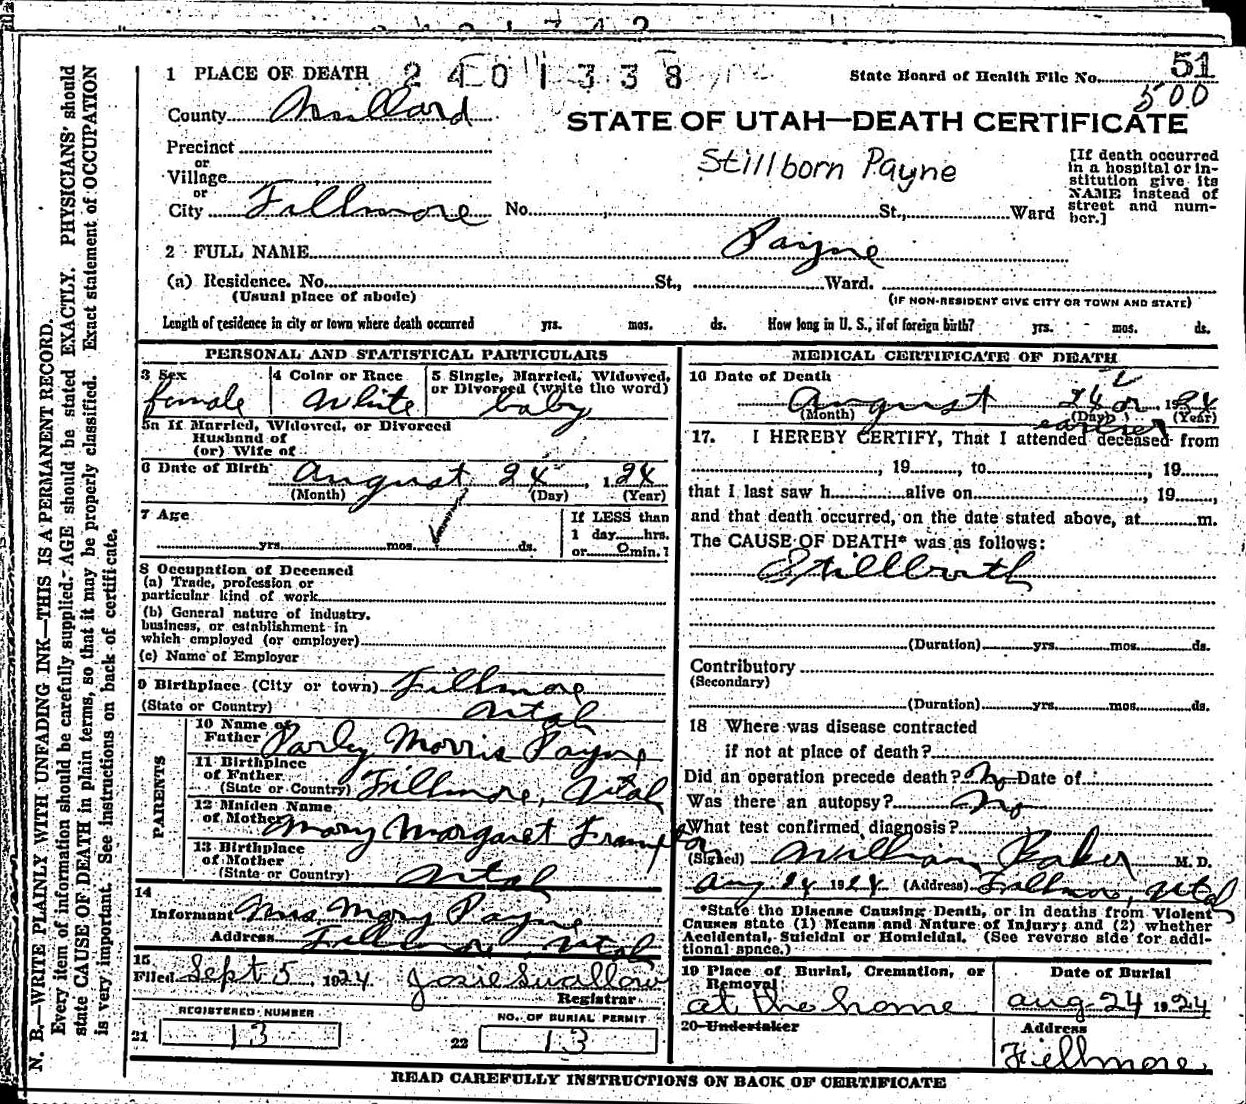 51
1 PLACE OF DEATH 2401338 State Board of Health File No. 500
County Millard
STATE OF UTAH—DEATH CERTIFICATE
Precinct
or
Village
or
City Fillmore No. , St., Ward
Stillborn Payne
[If death occurred
in a hospital or in-
stitution give its
NAME instead of
street and num-
ber.]
2 FULL NAME Payne
(a) Residence. No. St., Ward.
(Usual place of abode)
(IF NON-RESIDENT GIVE CITY OR TOWN AND STATE)
Length of residence in city or town where death occurred yrs. mos. ds. How long in U. S., if of foreign birth? yrs. mos. ds.
PERSONAL AND STATISTICAL PARTICULARS
3 Sex
female
4 Color or Race
White
5 Single, Married, Widowed,
or Divorced (write the word)
baby
5a If Married, Widowed, or Divorced
Husband of
(or) Wife of
6 Date of Birth August 24, 1924
(Month) (Day) (Year)
7 Age
yrs. mos. ds.
If LESS than
1 day hrs.
or 0 min.
8 Occupation of Deceased
(a) Trade, profession or
particular kind of work
(b) General nature of industry,
business, or establishment in
which employed (or employer)
(c) Name of Employer
9 Birthplace (City or town) Fillmore
(State or Country) Utah
PARENTS
10 Name of
Father Parley Morris Payne
11 Birthplace
of Father
(State or Country) Fillmore, Utah
12 Maiden Name
of Mother Mary Margaret Frampton
13 Birthplace
of Mother
(State or Country) Utah
14
Informant Mrs. Mary Payne
Address Fillmore, Utah
15
Filed Sept 5, 1924 Josie Swallow
Registrar
REGISTERED NUMBER
21 13
NO. OF BURIAL PERMIT
22 13
MEDICAL CERTIFICATE OF DEATH
16 Date of Death
August 24 or earlier, 1924
(Month) (Day) (Year)
17. I HEREBY CERTIFY, That I attended deceased from
, 19 , to , 19
that I last saw h alive on , 19 ,
and that death occurred, on the date stated above, at m.
The CAUSE OF DEATH* was as follows:
Stillbirth
(Duration) yrs. mos. ds.
Contributory
(Secondary)
(Duration) yrs. mos. ds.
18 Where was disease contracted
if not at place of death?
Did an operation precede death? No Date of
Was there an autopsy? No
What test confirmed diagnosis?
(Signed) William Baker M. D.
Aug 24 1924 (Address) Fillmore, Utah
*State the Disease Causing Death, or in deaths from Violent
Causes state (1) Means and Nature of Injury; and (2) whether
Accidental, Suicidal or Homicidal. (See reverse side for addi-
tional space.)
19 Place of Burial, Cremation, or
Removal
at the home
Date of Burial
Aug. 24 1924
20 Undertaker
Address
Fillmore
READ CAREFULLY INSTRUCTIONS ON BACK OF CERTIFICATE
N. B.—WRITE PLAINLY WITH UNFADING INK—THIS IS A PERMANENT RECORD.
Every item of information should be carefully supplied. AGE should be stated EXACTLY. PHYSICIANS should
state CAUSE OF DEATH in plain terms, so that it may be properly classified. Exact statement of OCCUPATION
is very important. See instructions on back of certificate.